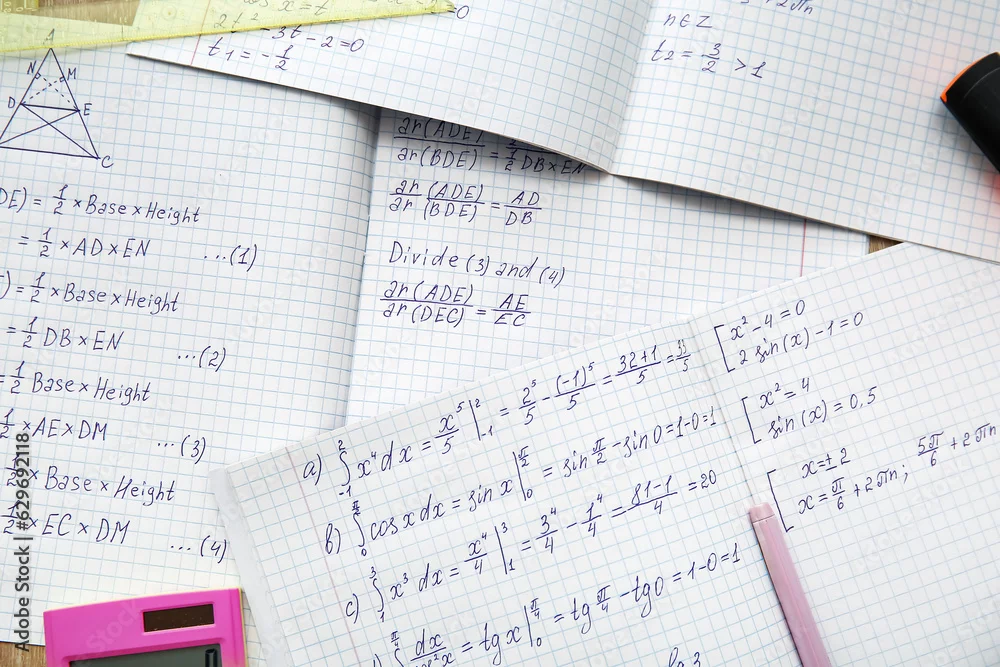 cos x = t
2t² - 3t - 2 = 0
t₁ = -1/2
n ∈ Z
t₂ = 3/2 > 1
A
N M
D E
C
DE) = 1/2 × Base × Height
= 1/2 × AD × EN ...(1)
) = 1/2 × Base × Height
= 1/2 DB × EN ...(2)
= 1/2 Base × Height
1/2 × AE × DM ...(3)
1/2 × Base × Height
1/2 × EC × DM ...(4)
ar(ADE)/ar(BDE) = /1/2 DB × EN
ar(ADE)/ar(BDE) = AD/DB
Divide (3) and (4)
ar(ADE)/ar(DEC) = AE/EC
a) ∫₋₁² x⁴ dx = x⁵/5 |₋₁² = 2⁵/5 - (-1)⁵/5 = 32+1/5 = 33/5
b) ∫₀^(π/2) cos x dx = sin x |₀^(π/2) = sin π/2 - sin 0 = 1-0=1
c) ∫₁³ x³ dx = x⁴/4 |₁³ = 3⁴/4 - 1⁴/4 = 81-1/4 = 20
∫^(π/4) dx/cos²x = tg x |₀^(π/4) = tg π/4 - tg 0 = 1-0=1
x² - 4 = 0
2 sin(x) - 1 = 0
x² = 4
sin(x) = 0,5
x = ± 2
x = π/6 + 2πn; 5π/6 + 2πn
Adobe Stock | #629692118
Adobe Stock